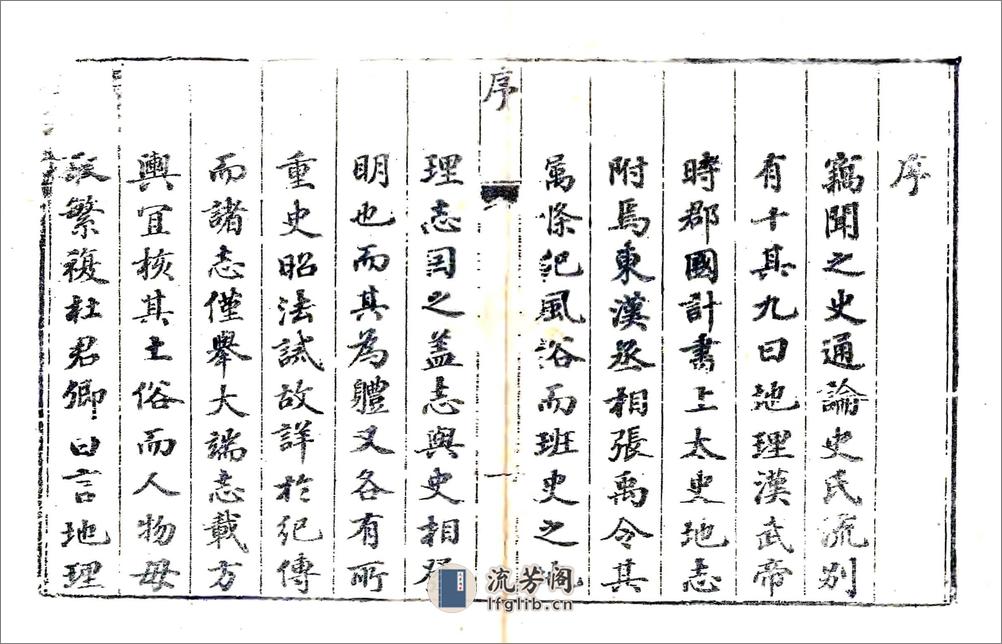 序
竊聞之史通論史氏流別
有十其九曰地理漢武帝
時郡國計書上太史地志
附焉東漢丞相張禹令其
屬條紀風俗而班史之
序
一
理志因之蓋志與史相
明也而其為體又各有所
重史昭法誡故詳於紀傳
而諸志僅舉大端志載方
輿宜核其土俗而人物毋
取繁複杜君卿曰言地理
流芳阁
lfglib.cn